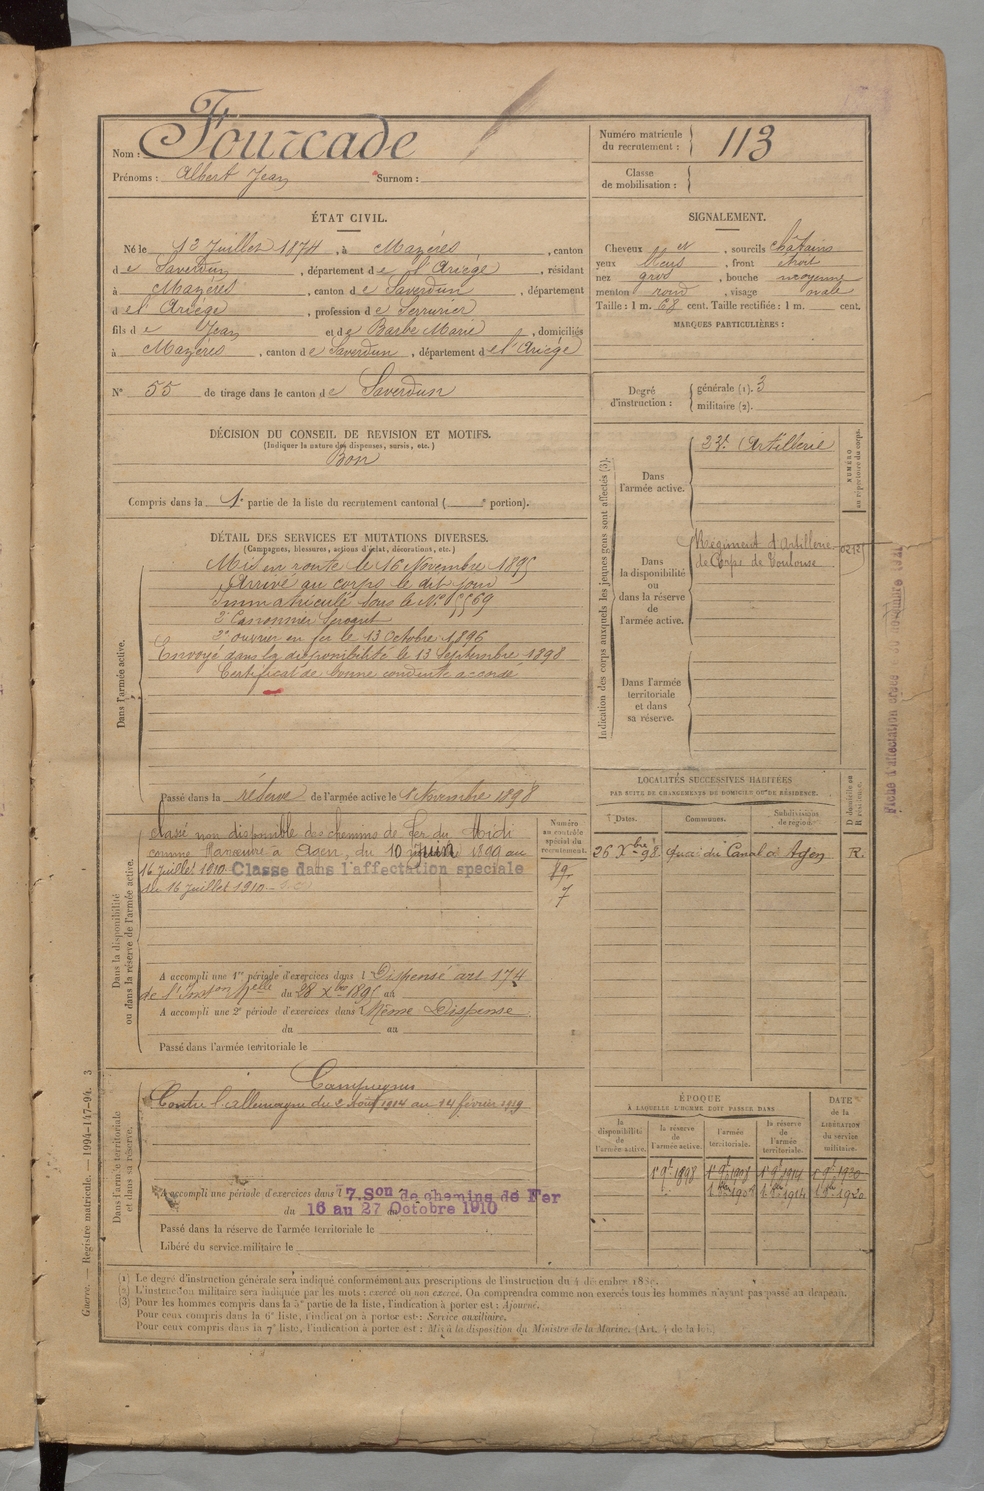 Nom : Fourcade
Prénoms : Albert Jean Surnom :
Numéro matricule du recrutement : 113
Classe de mobilisation :
ÉTAT CIVIL.
Né le 13 Juillet 1874, à Mazères, canton
de Saverdun, département de l'Ariège, résidant
à Mazères, canton de Saverdun, département
de l'Ariège, profession de Serrurier
fils de Jean et de Barbe Marie, domiciliés
à Mazères, canton de Saverdun, département de l'Ariège
N° 55 de tirage dans le canton de Saverdun
DÉCISION DU CONSEIL DE REVISION ET MOTIFS.
(Indiquer la nature des dispenses, sursis, etc.)
Bon
Compris dans la 1e partie de la liste du recrutement cantonal ( e portion).
SIGNALEMENT.
Cheveux et, sourcils châtains
yeux bleus, front étroit
nez gros, bouche moyenne
menton rond, visage ovale
Taille : 1 m. 68 cent. Taille rectifiée : 1 m. cent.
MARQUES PARTICULIÈRES :
Degré d'instruction :
générale (1). 3
militaire (2).
DÉTAIL DES SERVICES ET MUTATIONS DIVERSES.
(Campagnes, blessures, actions d'éclat, décorations, etc.)
Dans l'armée active.
Mis en route le 16 Novembre 1895
Arrivé au corps le dit jour
Immatriculé sous le N°
2e Canonnier Servant
2e ouvrier en fer le 13 Octobre 1896
Envoyé dans la disponibilité le 13 Septembre 1898
Certificat de bonne conduite accordé
Passé dans la réserve de l'armée active le 1 Novembre 1898
Indication des corps auxquels les jeunes gens sont affectés (3).
Dans l'armée active.
23e Artillerie
NUMÉRO au répertoire du corps.
Dans la disponibilité ou dans la réserve de l'armée active.
Régiment d'Artillerie
de Corps de Toulouse
Dans l'armée territoriale et dans sa réserve.
Dans la disponibilité ou dans la réserve de l'armée active.
Classé non disponible des chemins de fer du Midi
comme Manœuvre à Agen, du 10 Juin 1899 au
16 juillet 1910 Classé dans l'affectation spéciale
du 16 juillet 1910
Numéro au contrôle spécial du recrutement.
7
A accompli une 1re période d'exercices dans l Dispensé art 174
de l'Inston du 28 Xbre 1895 au
A accompli une 2e période d'exercices dans l Même Dispense
du au
Passé dans l'armée territoriale le
LOCALITÉS SUCCESSIVES HABITÉES
PAR SUITE DE CHANGEMENTS DE DOMICILE OU DE RÉSIDENCE.
Dates. Communes. Subdivisions de région. D domicile ou R résidence.
26 Xbre 98 du Canal Agen R.
Dans l'armée territoriale et dans sa réserve.
Campagnes
Contre l'Allemagne du 2 Août 1914 au 14 février 1919
A accompli une période d'exercices dans l 7.Son de chemins de Fer
du 16 au 27 Octobre 1910
Passé dans la réserve de l'armée territoriale le
Libéré du service militaire le
ÉPOQUE
À LAQUELLE L'HOMME DOIT PASSER DANS
la disponibilité de l'armée active. la réserve de l'armée active. l'armée territoriale. la réserve de l'armée territoriale.
DATE de la LIBÉRATION du service militaire.
1898 1908 1914 1920
1908 1914 1920
(1) Le degré d'instruction générale sera indiqué conformément aux prescriptions de l'instruction du 4 décembre
(2) L'instruction militaire sera indiquée par les mots : exercé ou non exercé. On comprendra comme non exercés tous les hommes n'ayant pas passé au drapeau.
(3) Pour les hommes compris dans la 5e partie de la liste, l'indication à porter est : Ajourné.
Pour ceux compris dans la 6e liste, l'indication à porter est : Service auxiliaire.
Pour ceux compris dans la 7e liste, l'indication à porter est : Mis à la disposition du Ministre de la Marine. (Art. 4 de la loi.)
Guerre. — Registre matricule. — 1994-147-94. 3
Fiche d'affectation